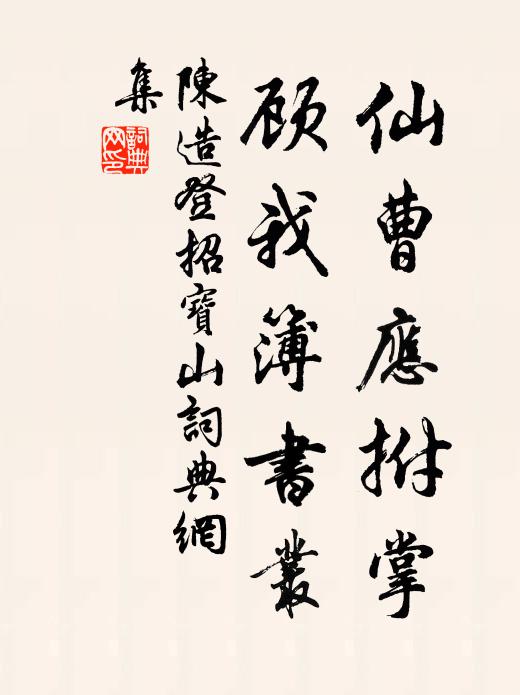 仙曹應拊掌
顧我簿書叢
陳造登招寶山詞典網
集
詞典
网印